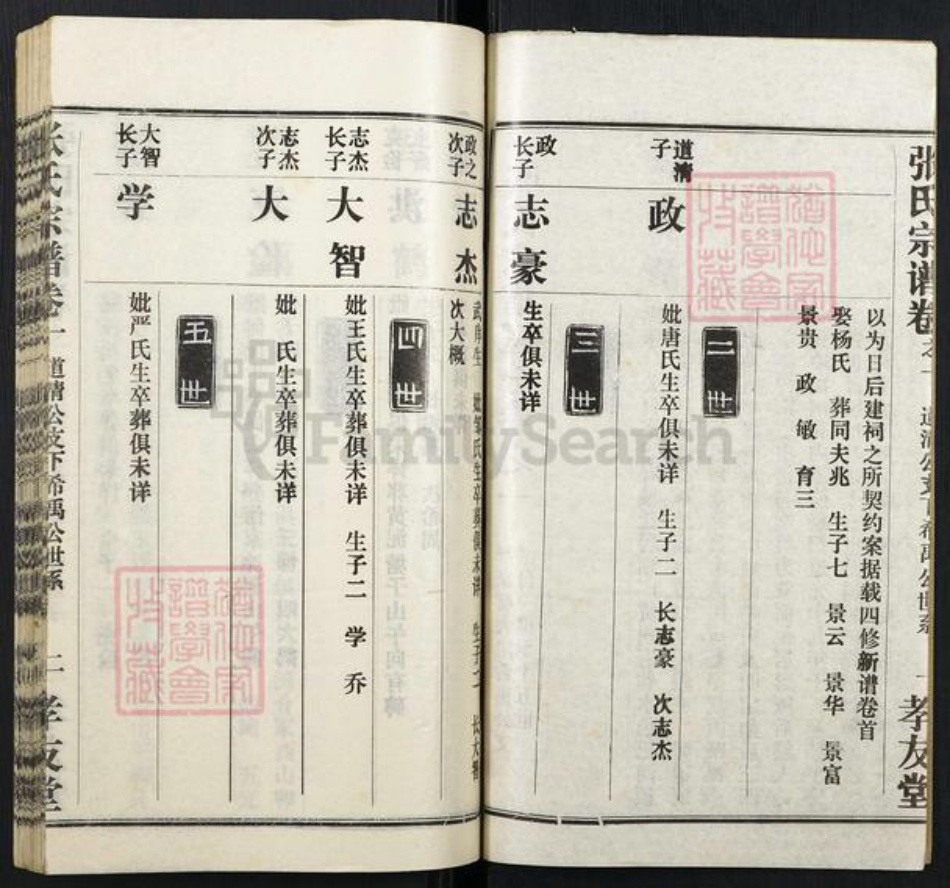 张氏宗谱卷之一 道清公支下希禹公世系 一 孝友堂
以为日后建祠之所契约案据载四修新谱卷首
娶杨氏 葬同夫兆 生子七 景云 景华 景富
景贵 政 敏 育三
二世
道清子
政
妣唐氏生卒俱未详 生子二 长志豪 次志杰
三世
政长子
志豪
生卒俱未详
政之次子
志杰
武庠生 妣邹氏生卒葬俱未详 生子二 长大智
次大概
四世
志杰长子
大智
妣王氏生卒葬俱未详 生子二 学 乔
志杰次子
大
妣 氏生卒葬俱未详
五世
大智长子
学
妣严氏生卒葬俱未详
张氏宗谱卷一 道清公支下希禹公世系 二 孝友堂
FamilySearch